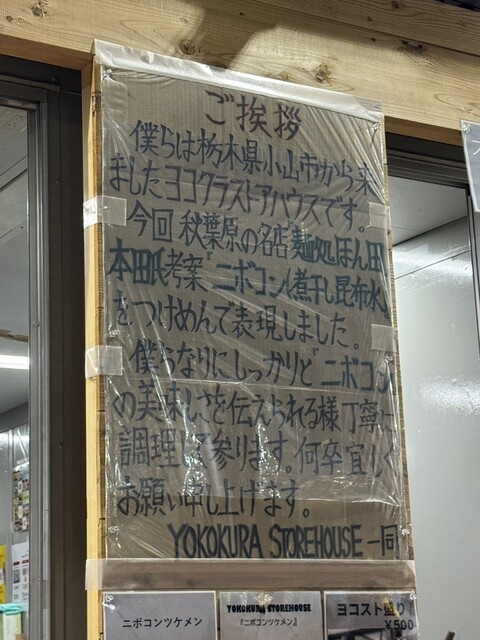 ご挨拶
僕らは栃木県小山市から来
ましたヨコクラストアハウスです。
今回 秋葉原の名店"麺処ほん田
本田氏考案"ニボコン(煮干し昆布水)
をつけめんで表現しました。
僕らなりにしっかりと"ニボコン
の美味しさを伝えられる様丁寧に
調理して参ります。何卒宜しく
お願い申し上げます。
YOKOKURA STOREHOUSE 一同
ニボコンツケメン
YOKOKURA STOREHOUSE
『ニボコンツケメン』
ヨコスト盛り
¥500